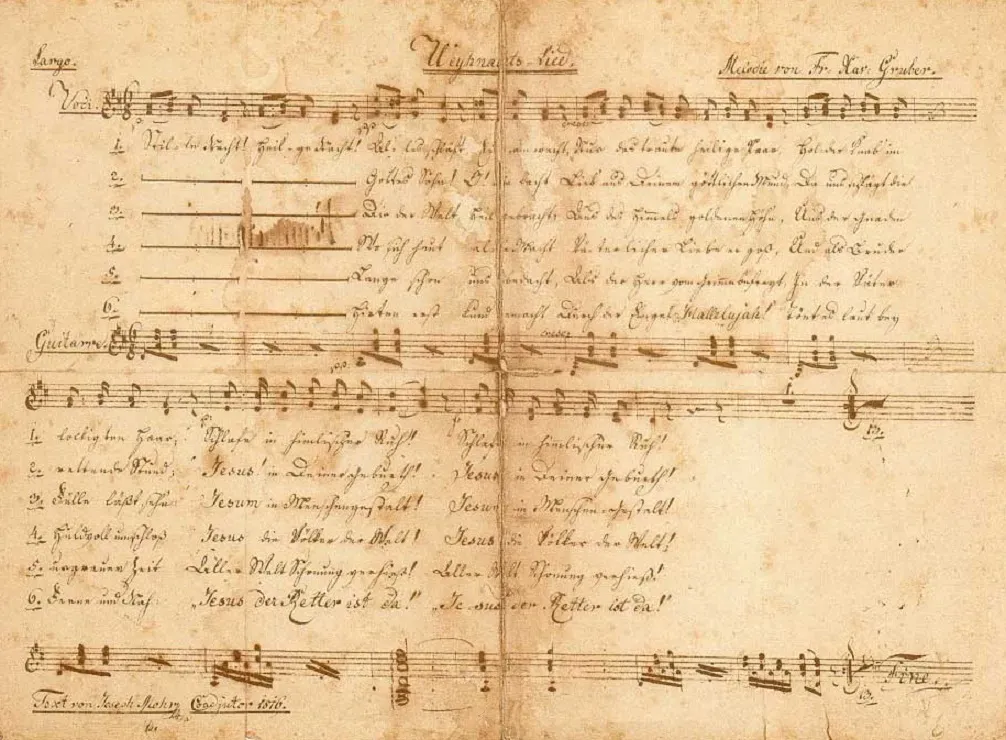 Largo. Weyhnachts-Lied. Melodie von Fr. Xav. Gruber.
Voci.
cresc
1. Stil-le Nacht! Heil-ge Nacht! Al-les schläft. Ein sam wacht, Nur das traute heilige Paar, Holder Knab' im
2. Gottes Sohn! O! wie lacht Lieb' aus Deinem göttlichen Mund, Da uns schlägt die
3. Die der Welt Heil gebracht; Aus des Himmels goldenen Höhn, Uns der Gnaden
4. Wo sich heut alle Macht Väterlicher Liebe ergoß, Und als Bruder
5. Lange schon uns bedacht, Als der Herr vom Grimme befreyt, In der Väter
6. Hirten erst kund gemacht Durch der Engel Hallelujah! Tönt es laut bey
Guitarre. cresc
1. lockigten Haar; Schlafe in himlischer Ruh! Schlafe in himlischer Ruh!
2. rettende Stund; Jesus! in Deiner Geburth! Jesus in Deiner Geburth!
3. Fülle läßt sehn Jesum in Menschengestalt! Jesum in Menschen-Gestalt!
4. Huldvoll umschloß Jesus die Völker der Welt! Jesus die Völker der Welt!
5. urgrauer Zeit Aller Welt Schonung verhieß! Aller Welt Schonung verhieß!
6. Ferne und Nah: „Jesus der Retter ist da!" „Jesus der Retter ist da!"
Fine.
Text von Joseph Mohr Coadjutor 1816.